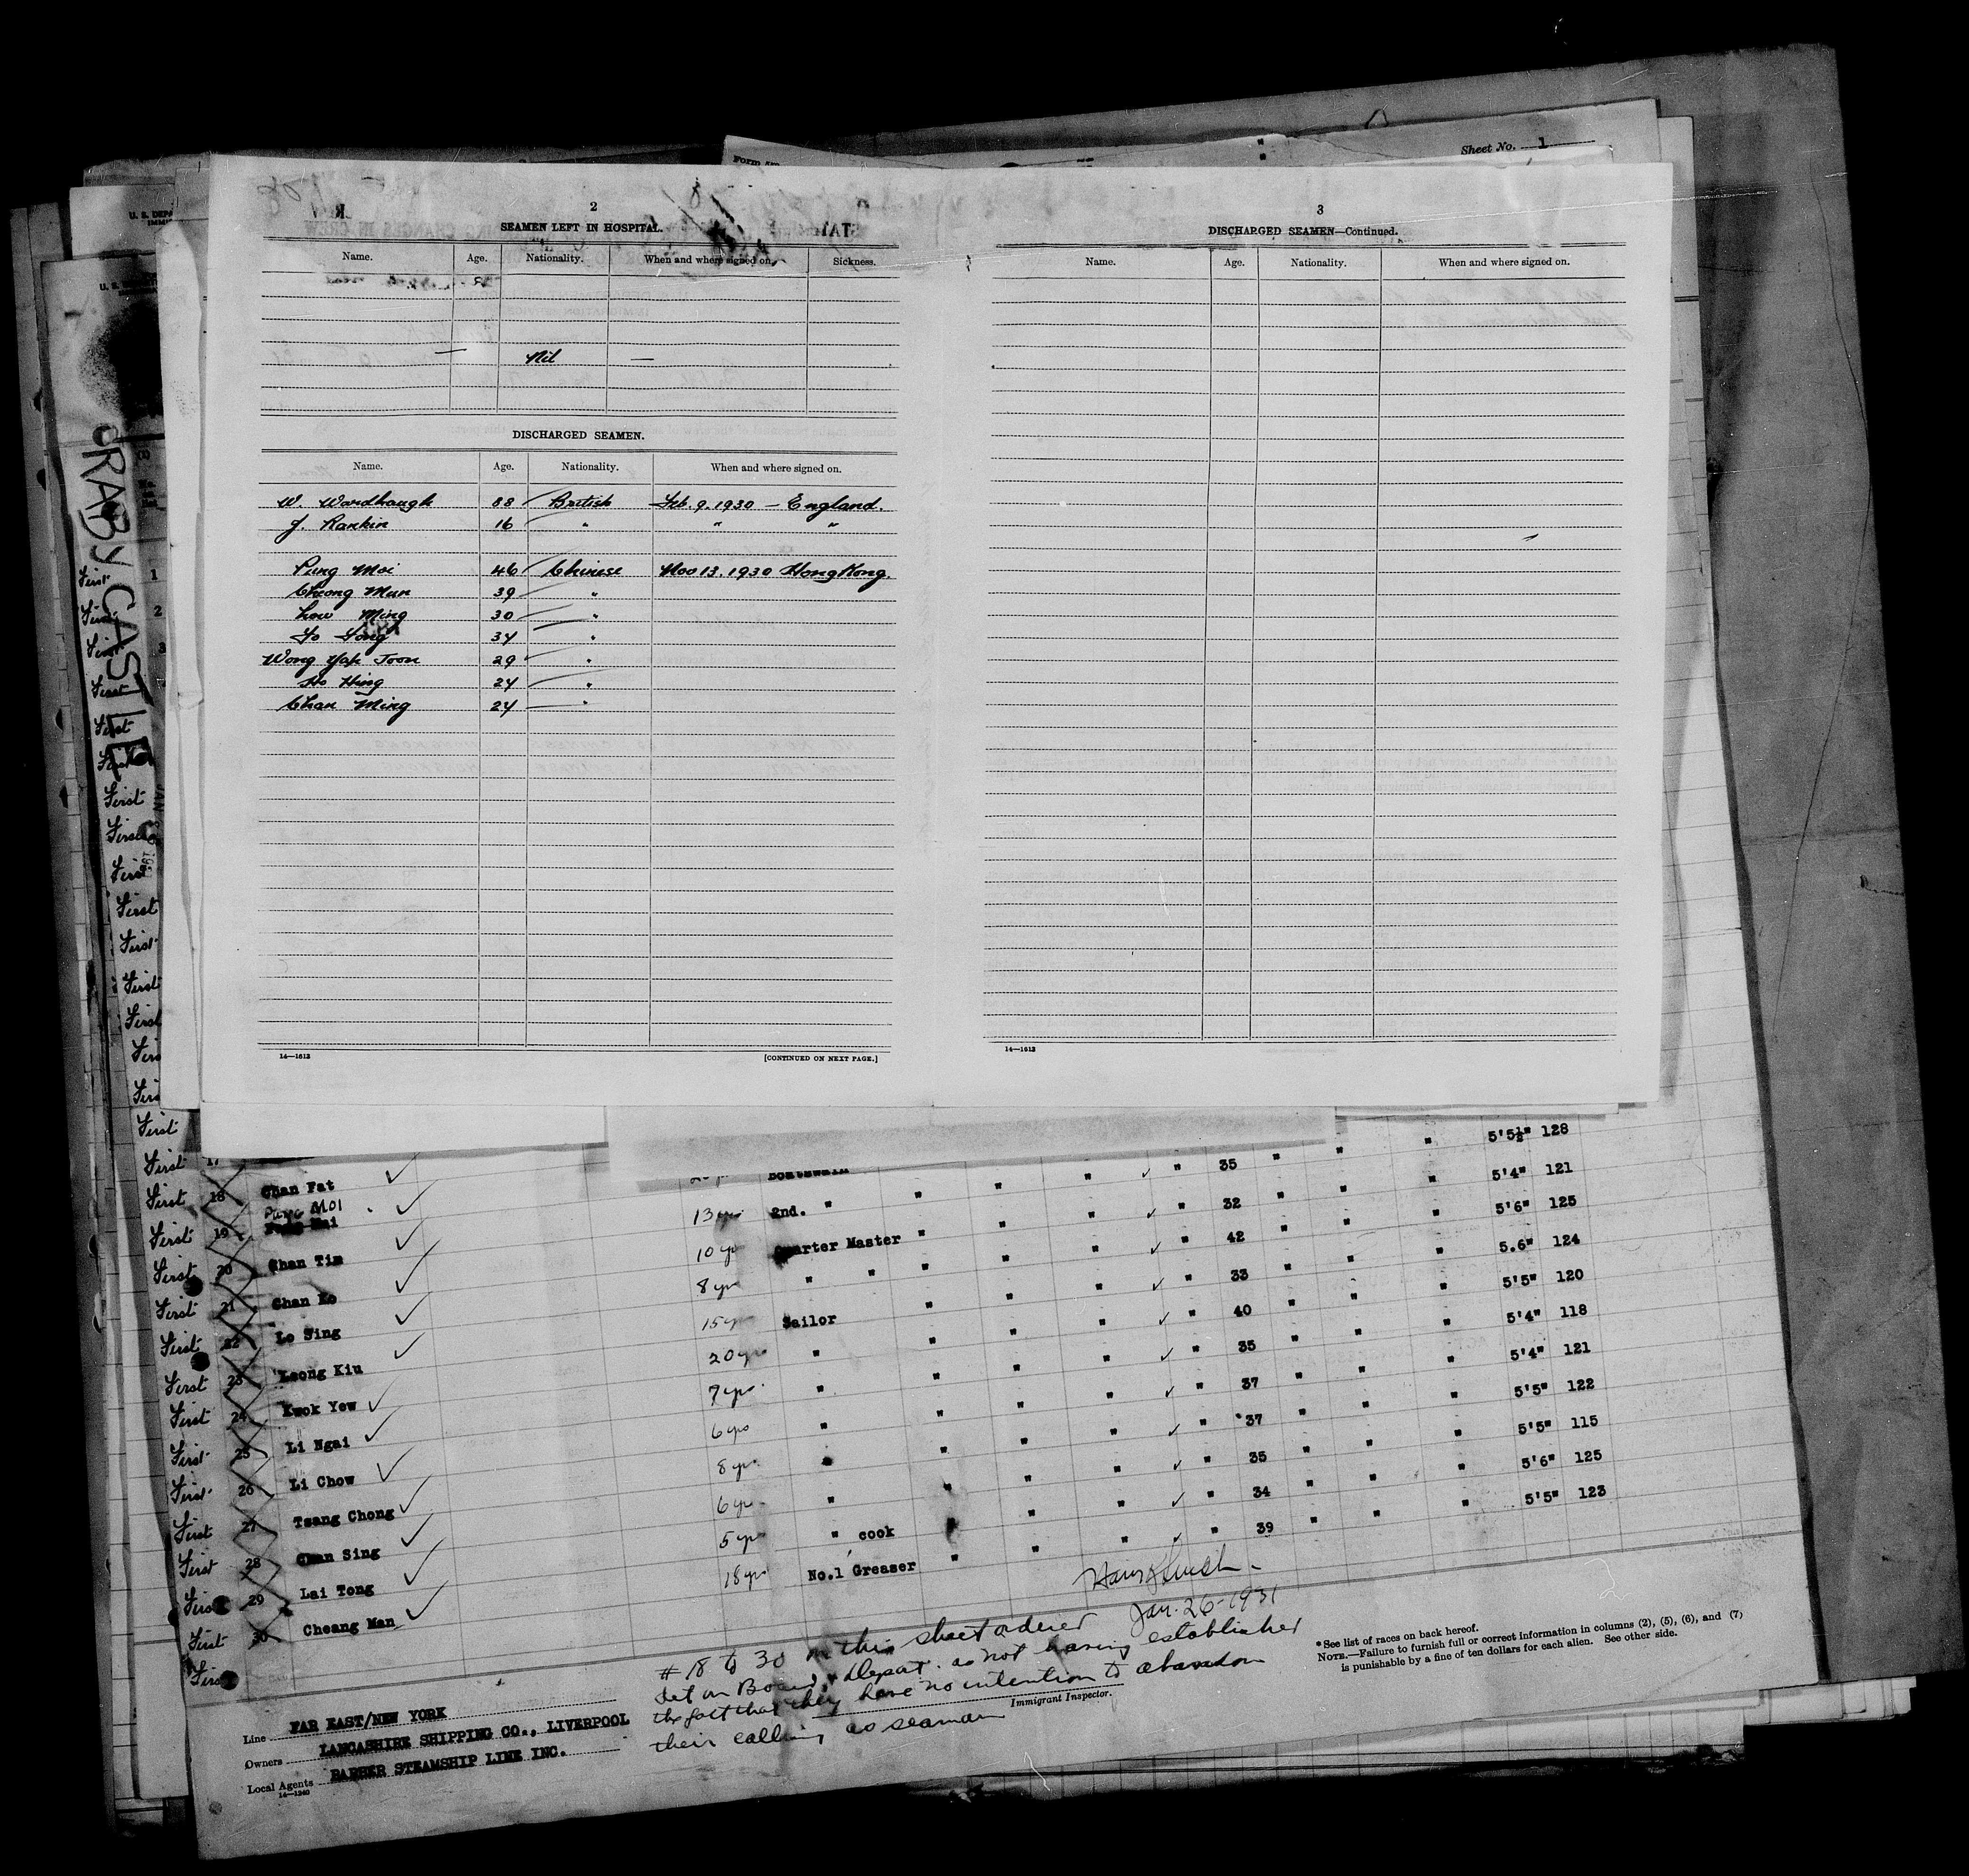 Sheet No. 1
2
SEAMEN LEFT IN HOSPITAL.
Name. Age. Nationality. When and where signed on. Sickness.
— Nil —
DISCHARGED SEAMEN.
Name. Age. Nationality. When and where signed on.
W. Wardhaugh 88 British Feb. 9. 1930 — England.
J. Rankin 16 " " "
Pung Moi 46 Chinese Nov 13. 1930 Hong Kong.
Cheong Mun 39 "
Low Ming 30 "
34 "
Wong Yak Joon 29 "
Ho Hing 24 "
Chan Ming 24 "
14—1613 [CONTINUED ON NEXT PAGE.]
3
DISCHARGED SEAMEN—Continued.
Name. Age. Nationality. When and where signed on.
14—1613
U. S. DEPA
CRABY CASTLE
First 1
First 2
First 3
First
First
First
First
First
First
First
First
First
First
First
First 17
First 18 Chan Fat Boatswain " " " 35 " " " 5'5½" 128
First 19 Pung Moi 13 yrs 2nd. " " " " " 32 " " " 5'4" 121
First 20 Chan Tim 10 yrs Quarter Master " " " " 42 " " " 5'6" 125
First 21 Chan Ko 8 yrs " " " " " " 33 " " " 5.6" 124
First 22 Lo Sing 15 yrs Sailor " " " " 40 " " " 5'5" 120
First 23 Leong Kiu 20 yrs " " " " " 35 " " " 5'4" 118
First 24 Kwok Yew 7 yrs " " " " " 37 " " " 5'4" 121
First 25 Li Ngai 6 yrs " " " " " 37 " " " 5'5" 122
First 26 Li Chow 8 yrs " " " " " 35 " " " 5'5" 115
First 27 Tsang Chong 6 yrs " " " " " 34 " " " 5'6" 125
First 28 Chan Sing 5 yrs " cook " " " 39 " " " 5'5" 123
First 29 Lai Tong 18 yrs No.1 Greaser " " "
First 30 Cheang Man
First
Jan. 26-1931
# 18 to 30 on this sheet ordered
det on Board & Deport. as not having established
the fact that they have no intention to abandon
their calling as seaman
Immigrant Inspector.
Line FAR EAST/NEW YORK
Owners LANCASHIRE SHIPPING CO., LIVERPOOL
Local Agents BARBER STEAMSHIP LINE INC.
14—1240
*See list of races on back hereof.
NOTE.—Failure to furnish full or correct information in columns (2), (5), (6), and (7)
is punishable by a fine of ten dollars for each alien. See other side.